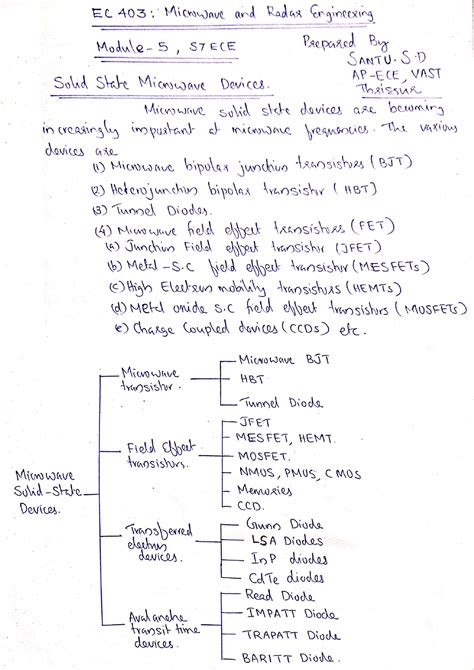 EC 403: Microwave and Radar Engineering
Module-5, S7 ECE
Prepared By
SANTU. S. D
AP-ECE, VAST
Thrissur
Solid State Microwave Devices.
Microwave solid state devices are becoming
increasingly important at microwave frequencies. The various
devices are
(1) Microwave bipolar junction transistors (BJT)
(2) Heterojunction bipolar transistor (HBT)
(3) Tunnel Diodes.
(4) Microwave field effect transistors (FET)
(a) Junction Field effect transistor (JFET)
(b) Metal-S.C field effect transistor (MESFETs)
(c) High Electron mobility transistors (HEMTs)
(d) Metal oxide S.C field effect transistors (MOSFETs)
(e) Charge Coupled devices (CCDs) etc.
Microwave
Solid-State
Devices.
Microwave
transistor.
Microwave BJT
HBT
Tunnel Diode
Field Effect
transistors.
JFET
MESFET, HEMT.
MOSFET.
NMOS, PMOS, CMOS
Memories
CCD.
Transferred
electron
devices.
Gunn Diode
LSA Diodes
InP diodes
CdTe diodes
Avalanche
transit time
devices
Read Diode
IMPATT Diode
TRAPATT Diode
BARITT Diode.